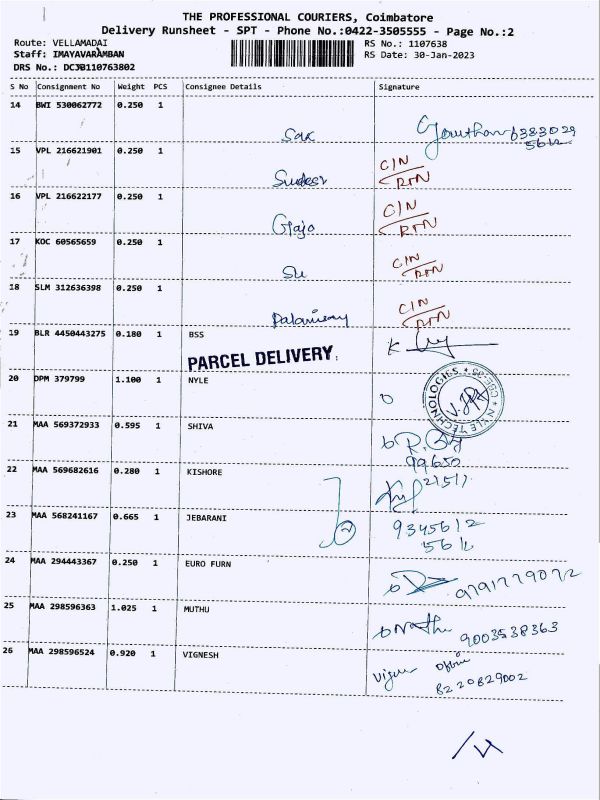 THE PROFESSIONAL COURIERS, Coimbatore
Delivery Runsheet - SPT - Phone No.:0422-3505555 - Page No.:2
Route: VELLAMADAI RS No.: 1107638
Staff: IMAYAVARAMBAN RS Date: 30-Jan-2023
DRS No.: DCJB110763802
S No Consignment No Weight PCS Consignee Details Signature
14 BWI 530062772 0.250 1
Gowthan 6383029
5612
15 VPL 216621901 0.250 1
Sudesr C/N
RTN
16 VPL 216622177 0.250 1
Gajo C/N
RTN
17 KOC 60565659 0.250 1
Su C/N
RTN
18 SLM 312636398 0.250 1
Palanisamy C/N
RTN
19 BLR 4450443275 0.180 1 BSS
PARCEL DELIVERY
20 DPM 379799 1.100 1 NYLE
NYLE TECHNOLOGIES * CBE-35 *
21 MAA 569372933 0.595 1 SHIVA
99650
22 MAA 569682616 0.280 1 KISHORE
21511
23 MAA 568241167 0.665 1 JEBARANI
9345612
5612
24 MAA 294443367 0.250 1 EURO FURN
9791779072
25 MAA 298596363 1.025 1 MUTHU
Muthu 9003538363
26 MAA 298596524 0.920 1 VIGNESH
Vignes
8220829002